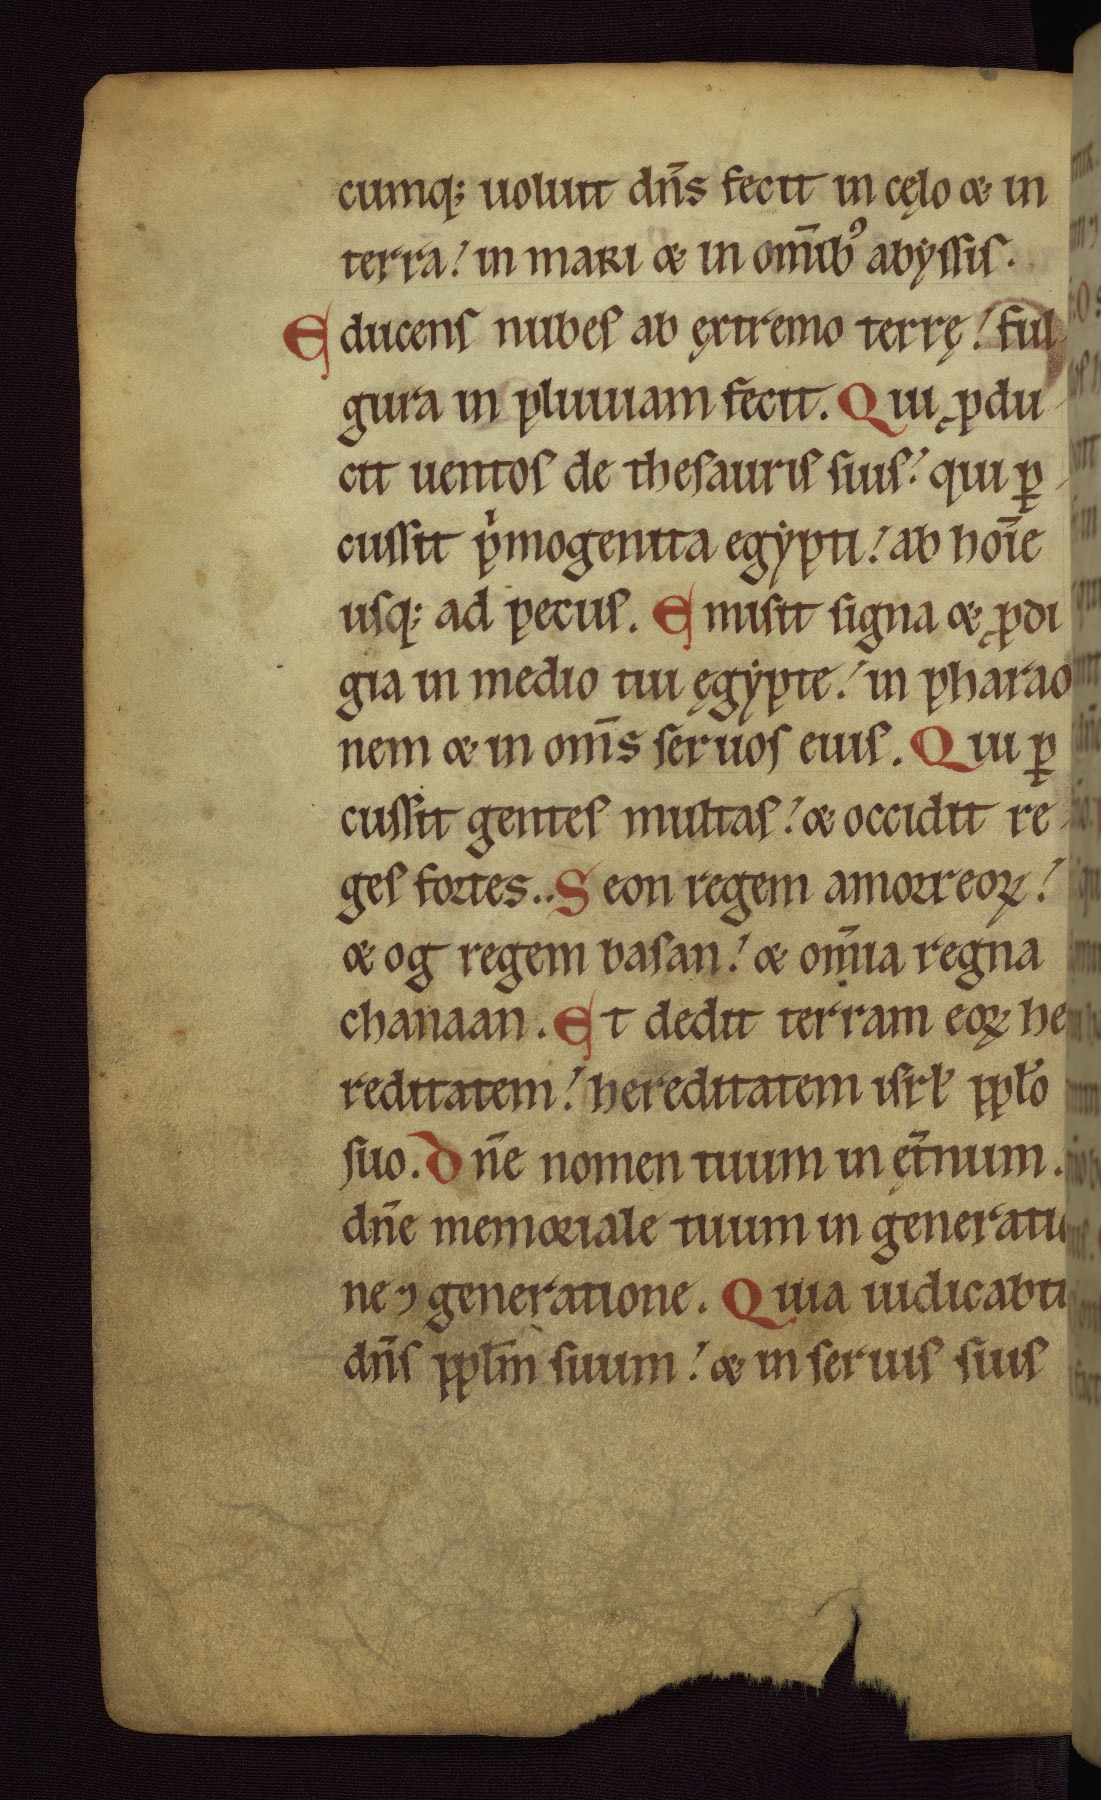 cumq; uoluit dn̄s fecit in cęlo & in
terra! in mari & in om̄ib⁹ abyssis.
Educens nubes ab ęxtremo terrę! ful
gura in pluuiam fecit. Qui ꝓdu
cit uentos de thesauris suis! qui ꝑ
cussit pͥmogenita egẏpti! ab hoīe
usq; ad pecus. Emisit signa & ꝓdi
gia in medio tui ęgẏpte! in pharao
nem & in om̄s seruos eius. Qui ꝑ
cussit gentes multas! & occidit re
ges fortes.. Seon regem amorreoꝝ!
& og regem basan! & om̄ia regna
chanaan. Et dedit terram eoꝝ he
reditatem! hereditatem isrł ppło
suo. Dn̄e nomen tuum in ęt̄num.
dn̄e memoriale tuum in generatio
ne ⁊ generatione. Quia iudicabit
dn̄s ppłm suum! & in seruis suis